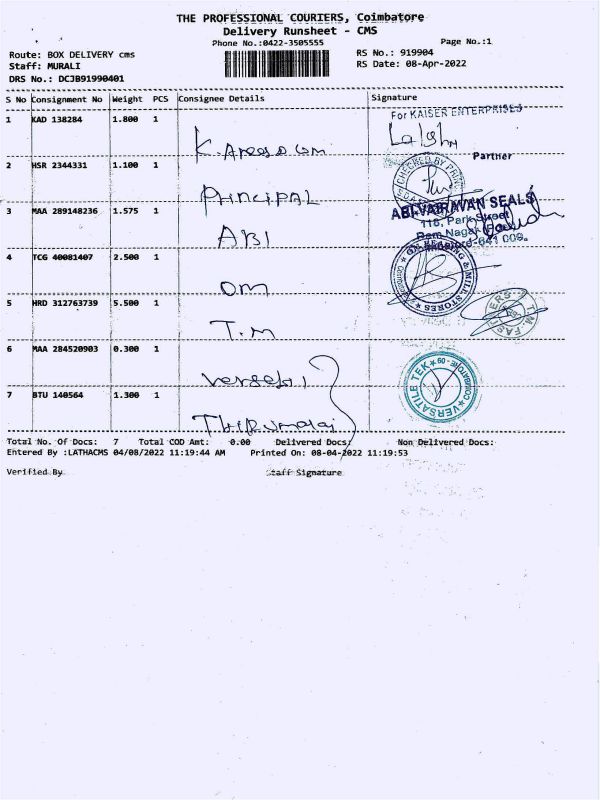 THE PROFESSIONAL COURIERS, Coimbatore
Delivery Runsheet - CMS
Phone No.:0422-3505555
Page No.:1
Route: BOX DELIVERY cms
RS No.: 919904
Staff: MURALI
RS Date: 08-Apr-2022
DRS No.: DCJB91990401
S No Consignment No Weight PCS Consignee Details Signature
1 KAD 138284 1.800 1
For KAISER ENTERPRISES
Partner
2 HSR 2344331 1.100 1
CHECKED BY
PRINCIPAL
3 MAA 289148236 1.575 1
ABI
ABI-VAIRAVAN SEALS
116, Park Street
Ram Nagar
641 009.
4 TCG 40081407 2.500 1
OM
BEARING & MILL STORES
5 HRD 312763739 5.500 1
T.M
T.M. FASTENERS
6 MAA 284520903 0.300 1
VERSATILE TEK
COIMBATORE-09
7 BTU 140564 1.300 1
Thirumalai
Total No. Of Docs: 7 Total COD Amt: 0.00 Delivered Docs: Non Delivered Docs:
Entered By :LATHACMS 04/08/2022 11:19:44 AM Printed On: 08-04-2022 11:19:53
Verified By Staff Signature